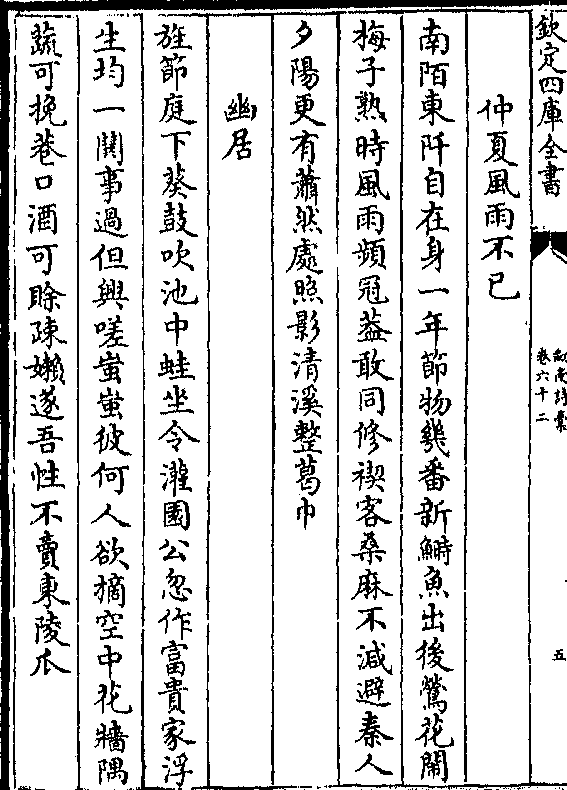 欽定四庫全書
劍南詩稾
卷六十二
五
仲夏風雨不已
南陌東阡自在身一年節物幾番新鰣魚出後鶯花閙
梅子熟時風雨頻冠葢敢同修禊客桑麻不減避秦人
夕陽更有蕭然處照影清溪整葛巾
幽居
旌節庭下葵鼓吹池中蛙坐令灌園公忽作富貴家浮
生均一闋事過但興嗟蚩蚩彼何人欲摘空中花牆隅
蔬可挽巷口酒可賒疎嬾遂吾性不賣東陵瓜